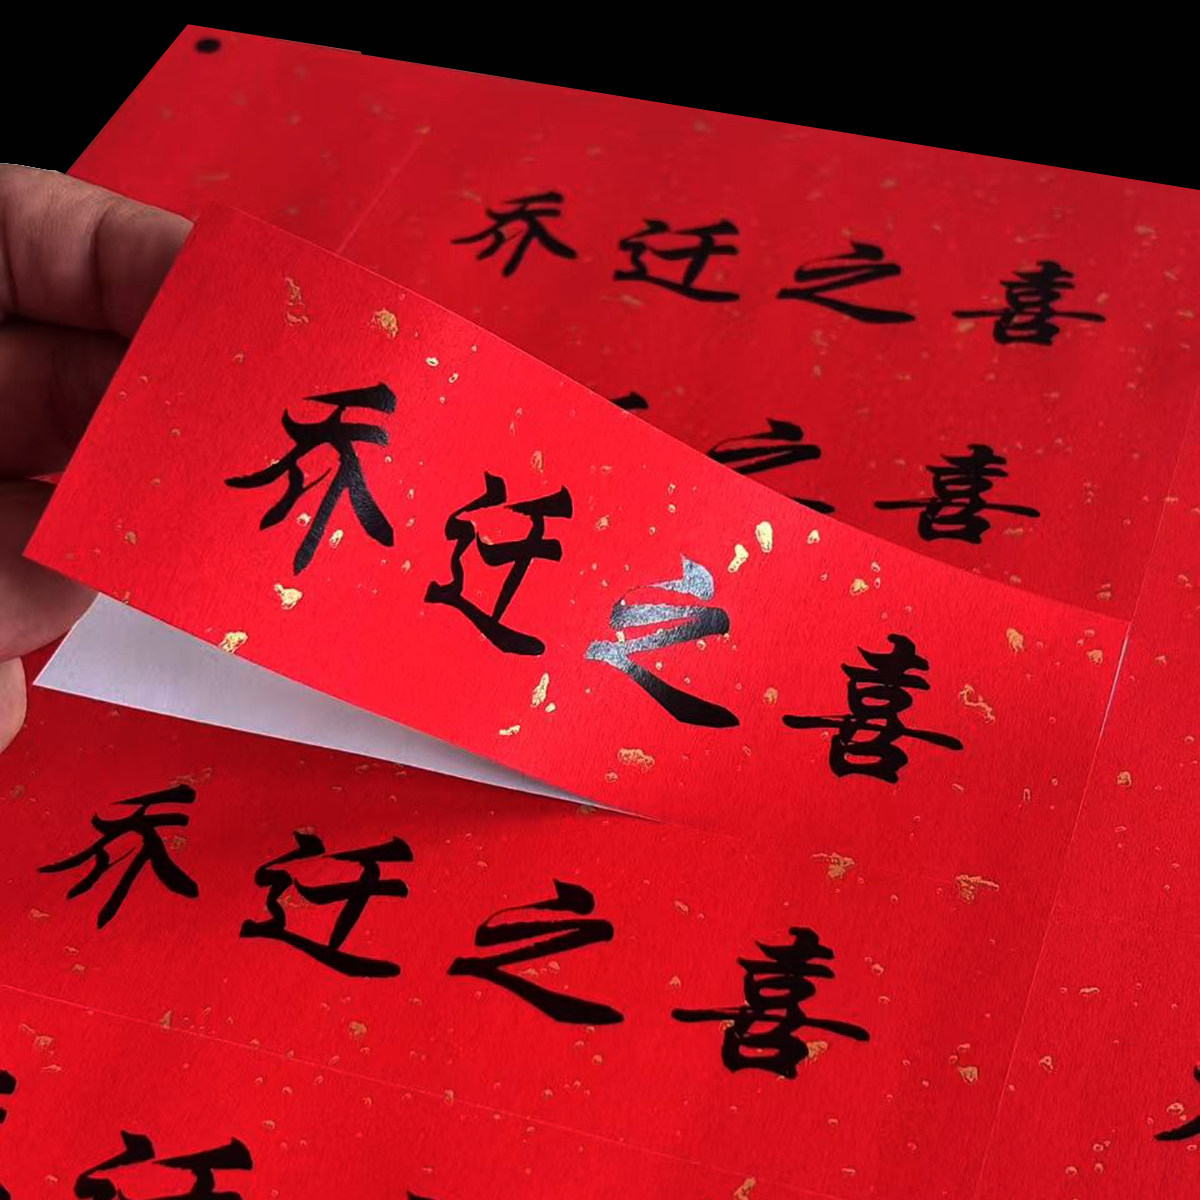 乔迁之喜
之喜
乔迁之喜
乔迁之喜
迁